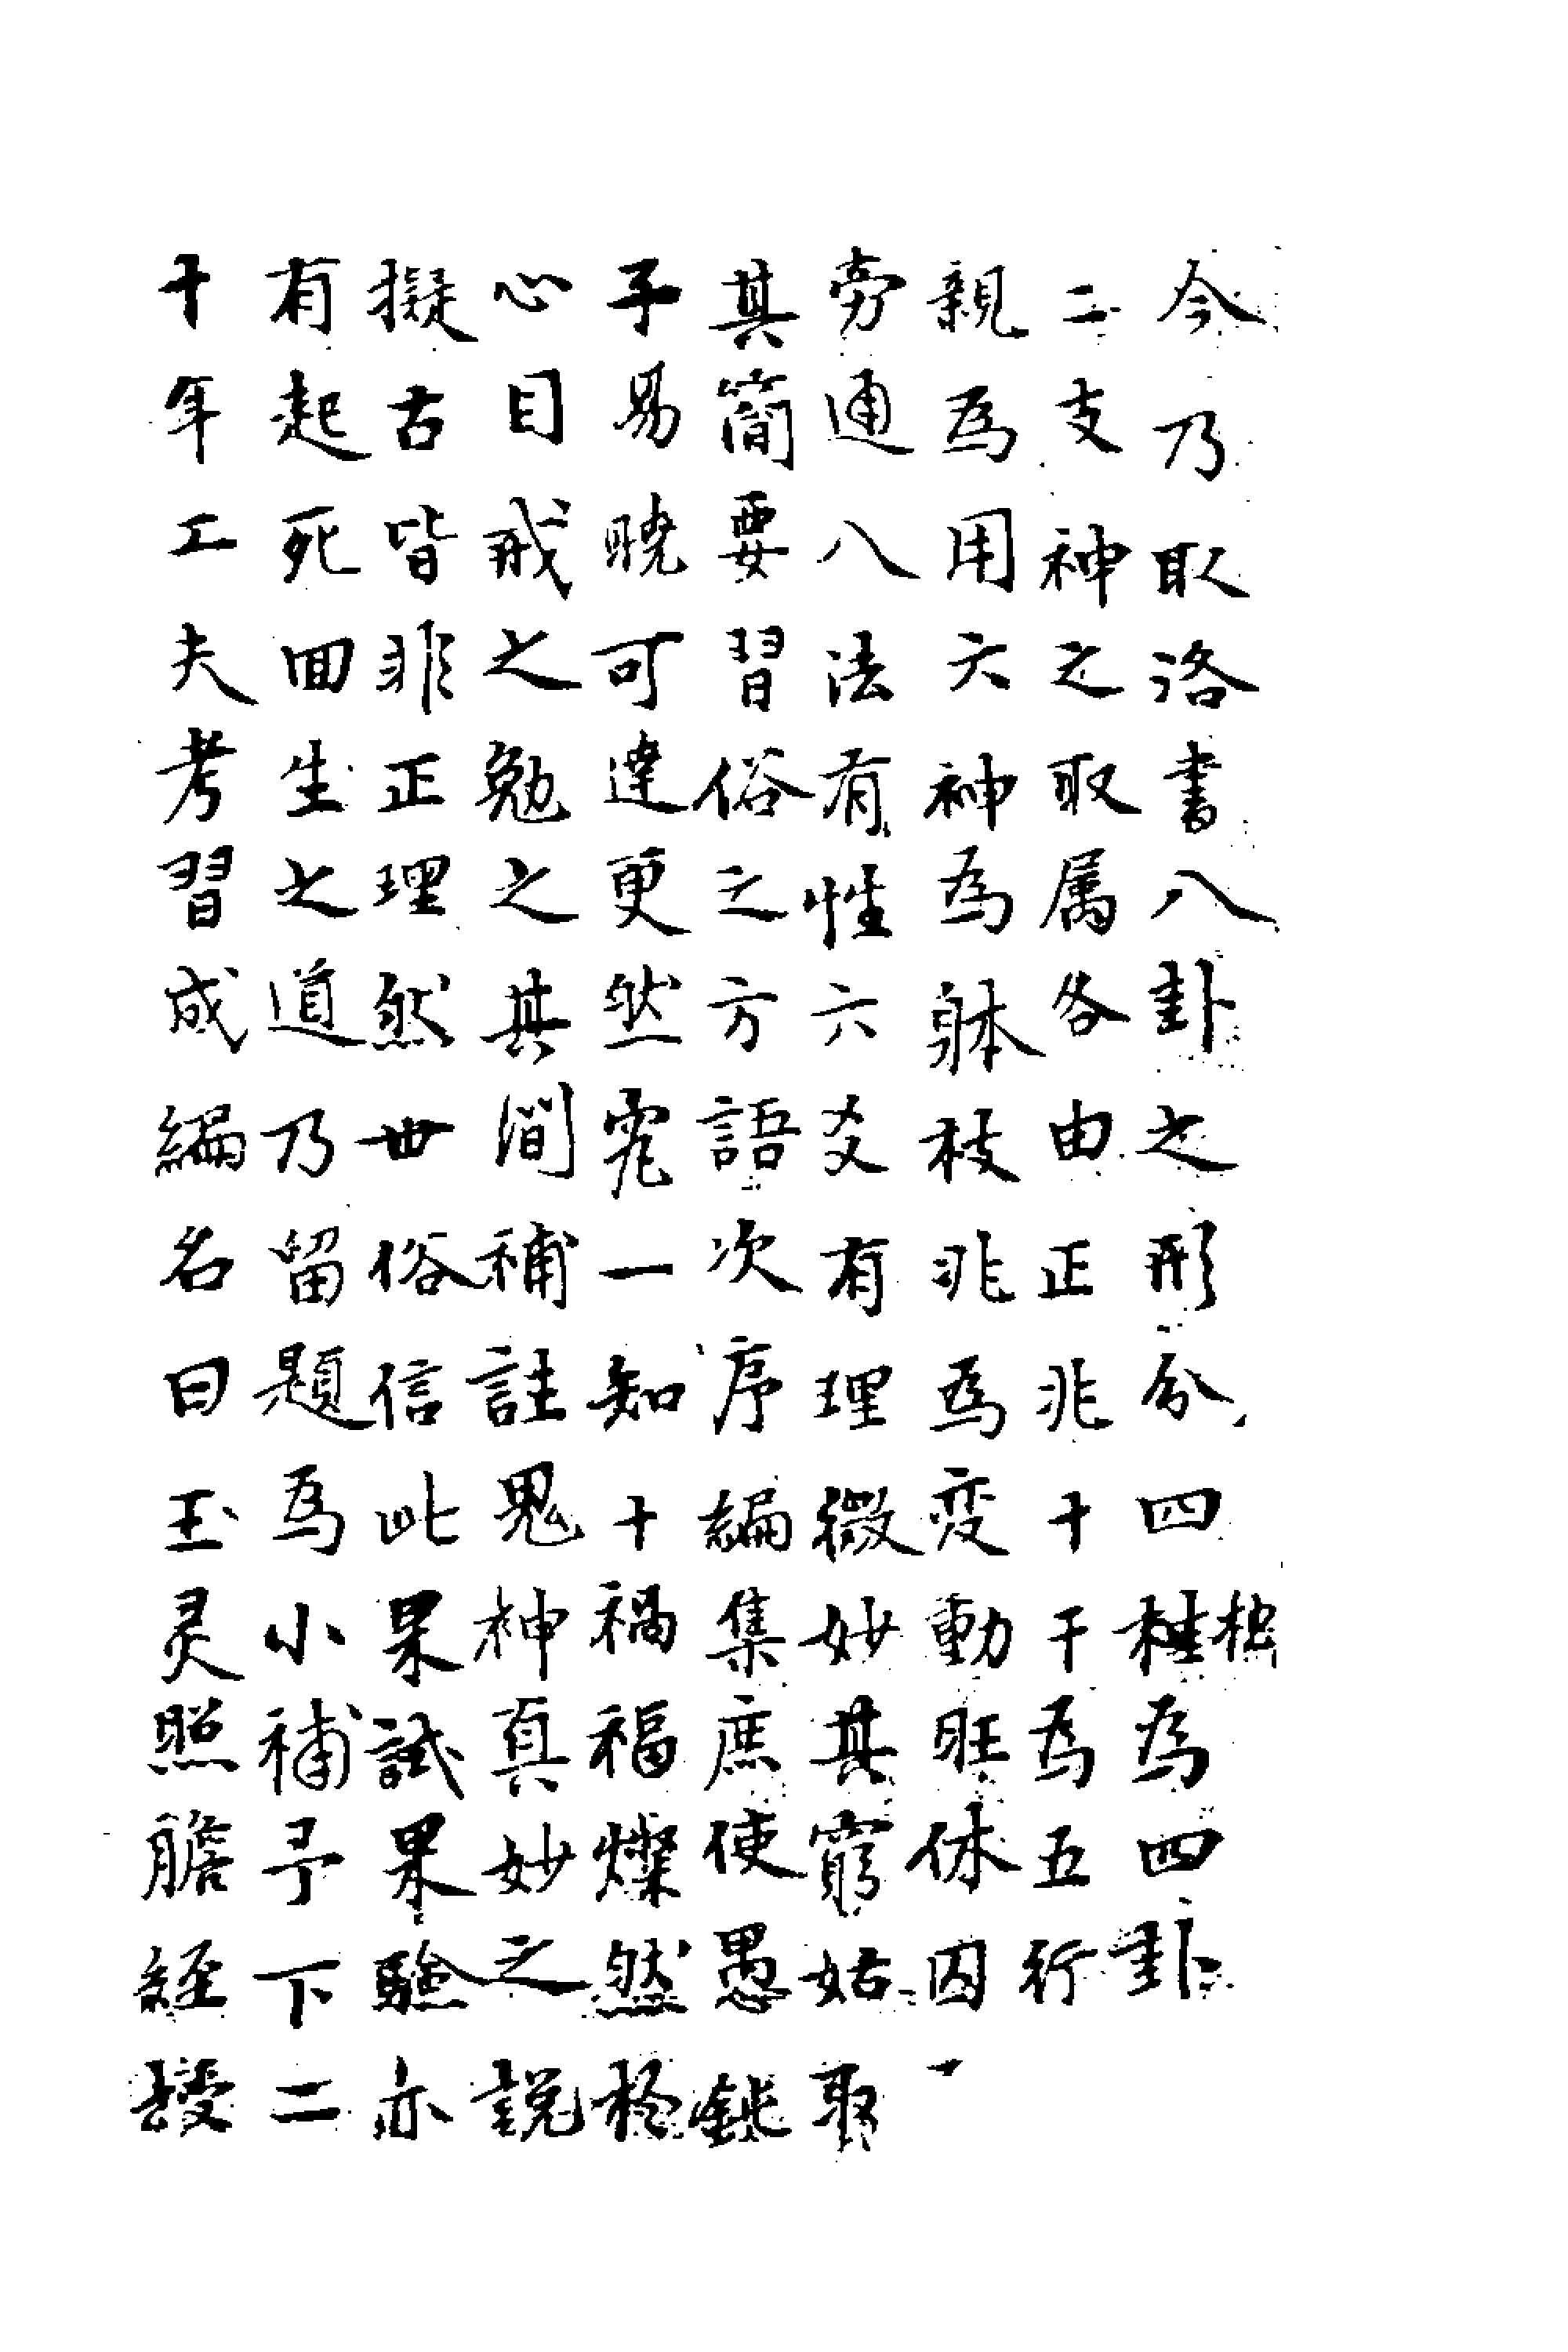 今乃取洛書八卦之形分四桂為四卦
松
二支神之取属各由正兆十干為五行
親為用六神為躰枝兆為変動旺休囚一
旁通八法有性六爻有理微妙其窮姑取
其簡要習俗之方語次序編集庶使愚鈍
子易曉可達更然窕一知十禍福燦然於
心目戒之勉之其間補註鬼神真妙之説
擬古皆非正理然世俗信此果試果驗亦
有起死回生之道乃留題為小補予下二
十年工夫考習成編名曰玉灵照膽経